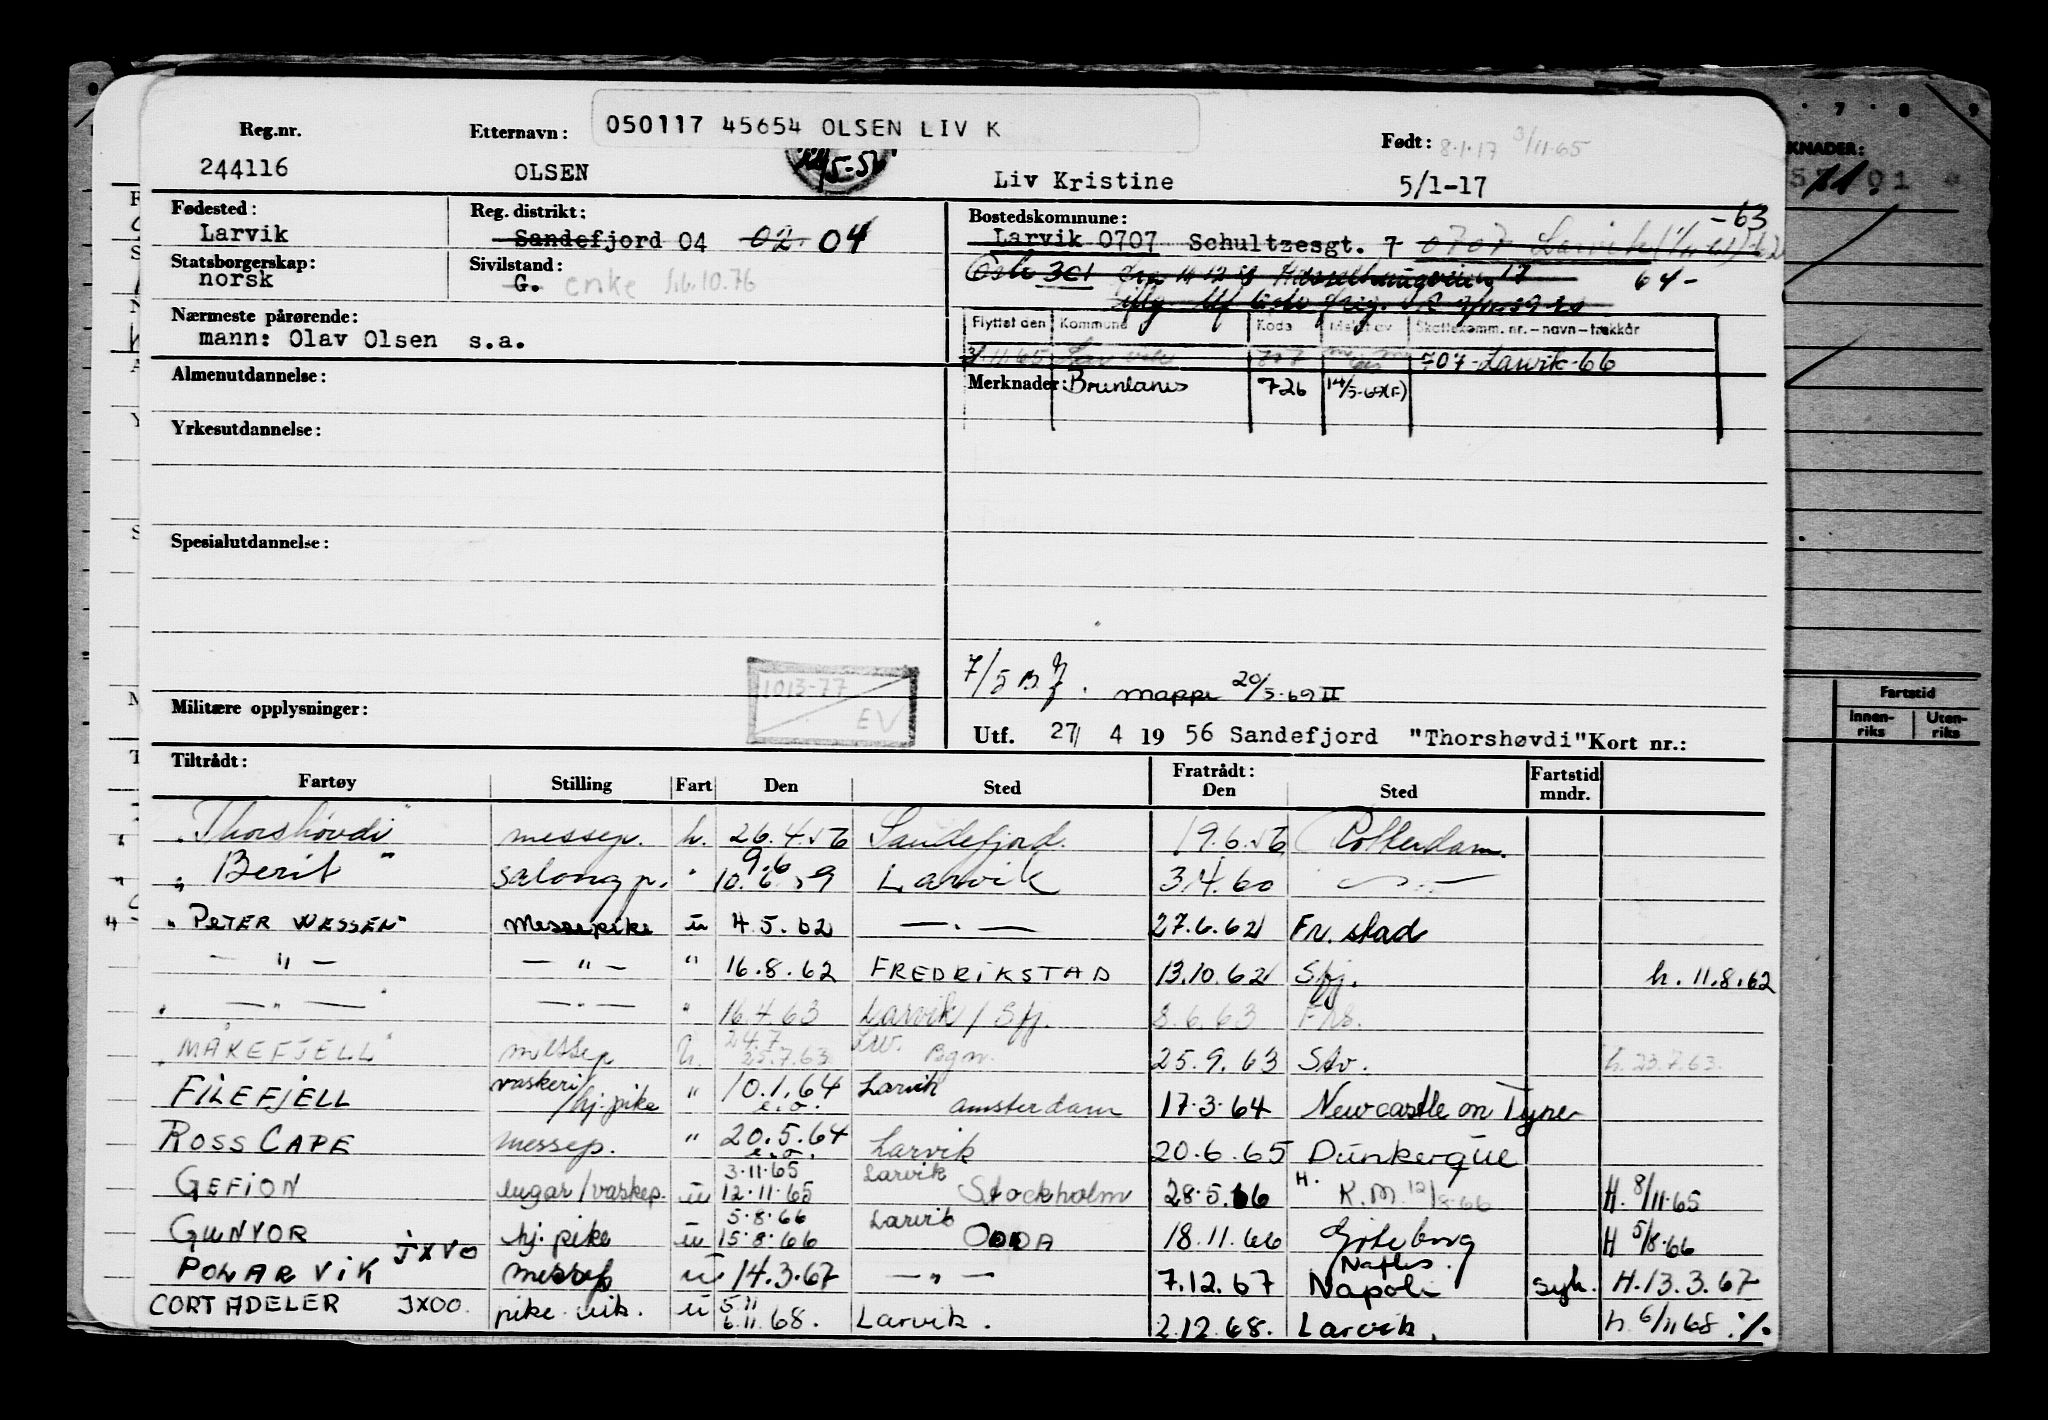 050117 45654 OLSEN LIV K
Reg.nr. Etternavn: Født: 8.1.17 3/11-65
244116 OLSEN Liv Kristine 5/1-17
Fødested: Reg. distrikt: Bostedskommune: -63
Larvik Sandefjord 04 02 04 Larvik 0707 Schultzesgt. 7 0707 Larvik
Statsborgerskap: Sivilstand: Oslo 301 64-
norsk G. enke
Nærmeste pårørende: Flyttet den Kommune Kode Skattekomm. nr.-navn-trekkår
mann: Olav Olsen s.a. 707-Larvik-66
Almenutdannelse: Merknader: Brunlanes 726 14/5-69(F)
Yrkesutdannelse:
Spesialutdannelse:
7/5 mappe 20/5-69 II
1013-77
EV
Militære opplysninger: Utf. 27/ 4 19 56 Sandefjord "Thorshøvdi" Kort nr.:
Tiltrådt: Fratrådt: Fartstid
Fartøy Stilling Fart Den Sted Den Sted mndr.
"Thorshøvdi" messep. h. 26.4.56 Sandefjord. 19.6.56 Rotterdam.
"Berit" salongp. " 9.6 10.6.59 Larvik 3.4.60 —.—
"PETER WESSEN" Messepike u 4.5.62 —.— 27.6.62 Fr.stad
— " — — " — " 16.8.62 FREDRIKSTAD 13.10.62 Sfj. h. 11.8.62
— " — — " — " 16.4.63 Larvik / Sfj. 8.6.63 Frs.
"MÅKEFJELL" messep h. 24.7 25.7.63 Lrv. Bgn. 25.9.63 Stv. h. 23.7.63.
FILEFJELL vaskeri/hj.pike " 10.1.64 e.o. Larvik Amsterdam 17.3.64 Newcastle on Tyne
ROSS CAPE messep. " 20.5.64 e.o. Larvik 20.6.65 Dunkerque
GEFION lugar/vaskep. u 3.11.65 12.11.65 Larvik Stockholm 28.5.66 H. K.M. 12/8-66 H. 8/11-65
GUNVOR hj. pike u 5.8.66 15.8.66 Larvik ODDA 18.11.66 Göteborg H 5/8-66
POLARVIK JXVO messep u. 14.3.67 — " — 7.12.67 Naples. Napoli syk. H. 13.3.67
CORT ADELER JXOO. pike vik. u 5.11 6.11.68. Larvik. 2.12.68. Larvik. h. 6/11 68 ./.
7 8 9
KNADER:
Fartstid
Innen-riks Uten-riks